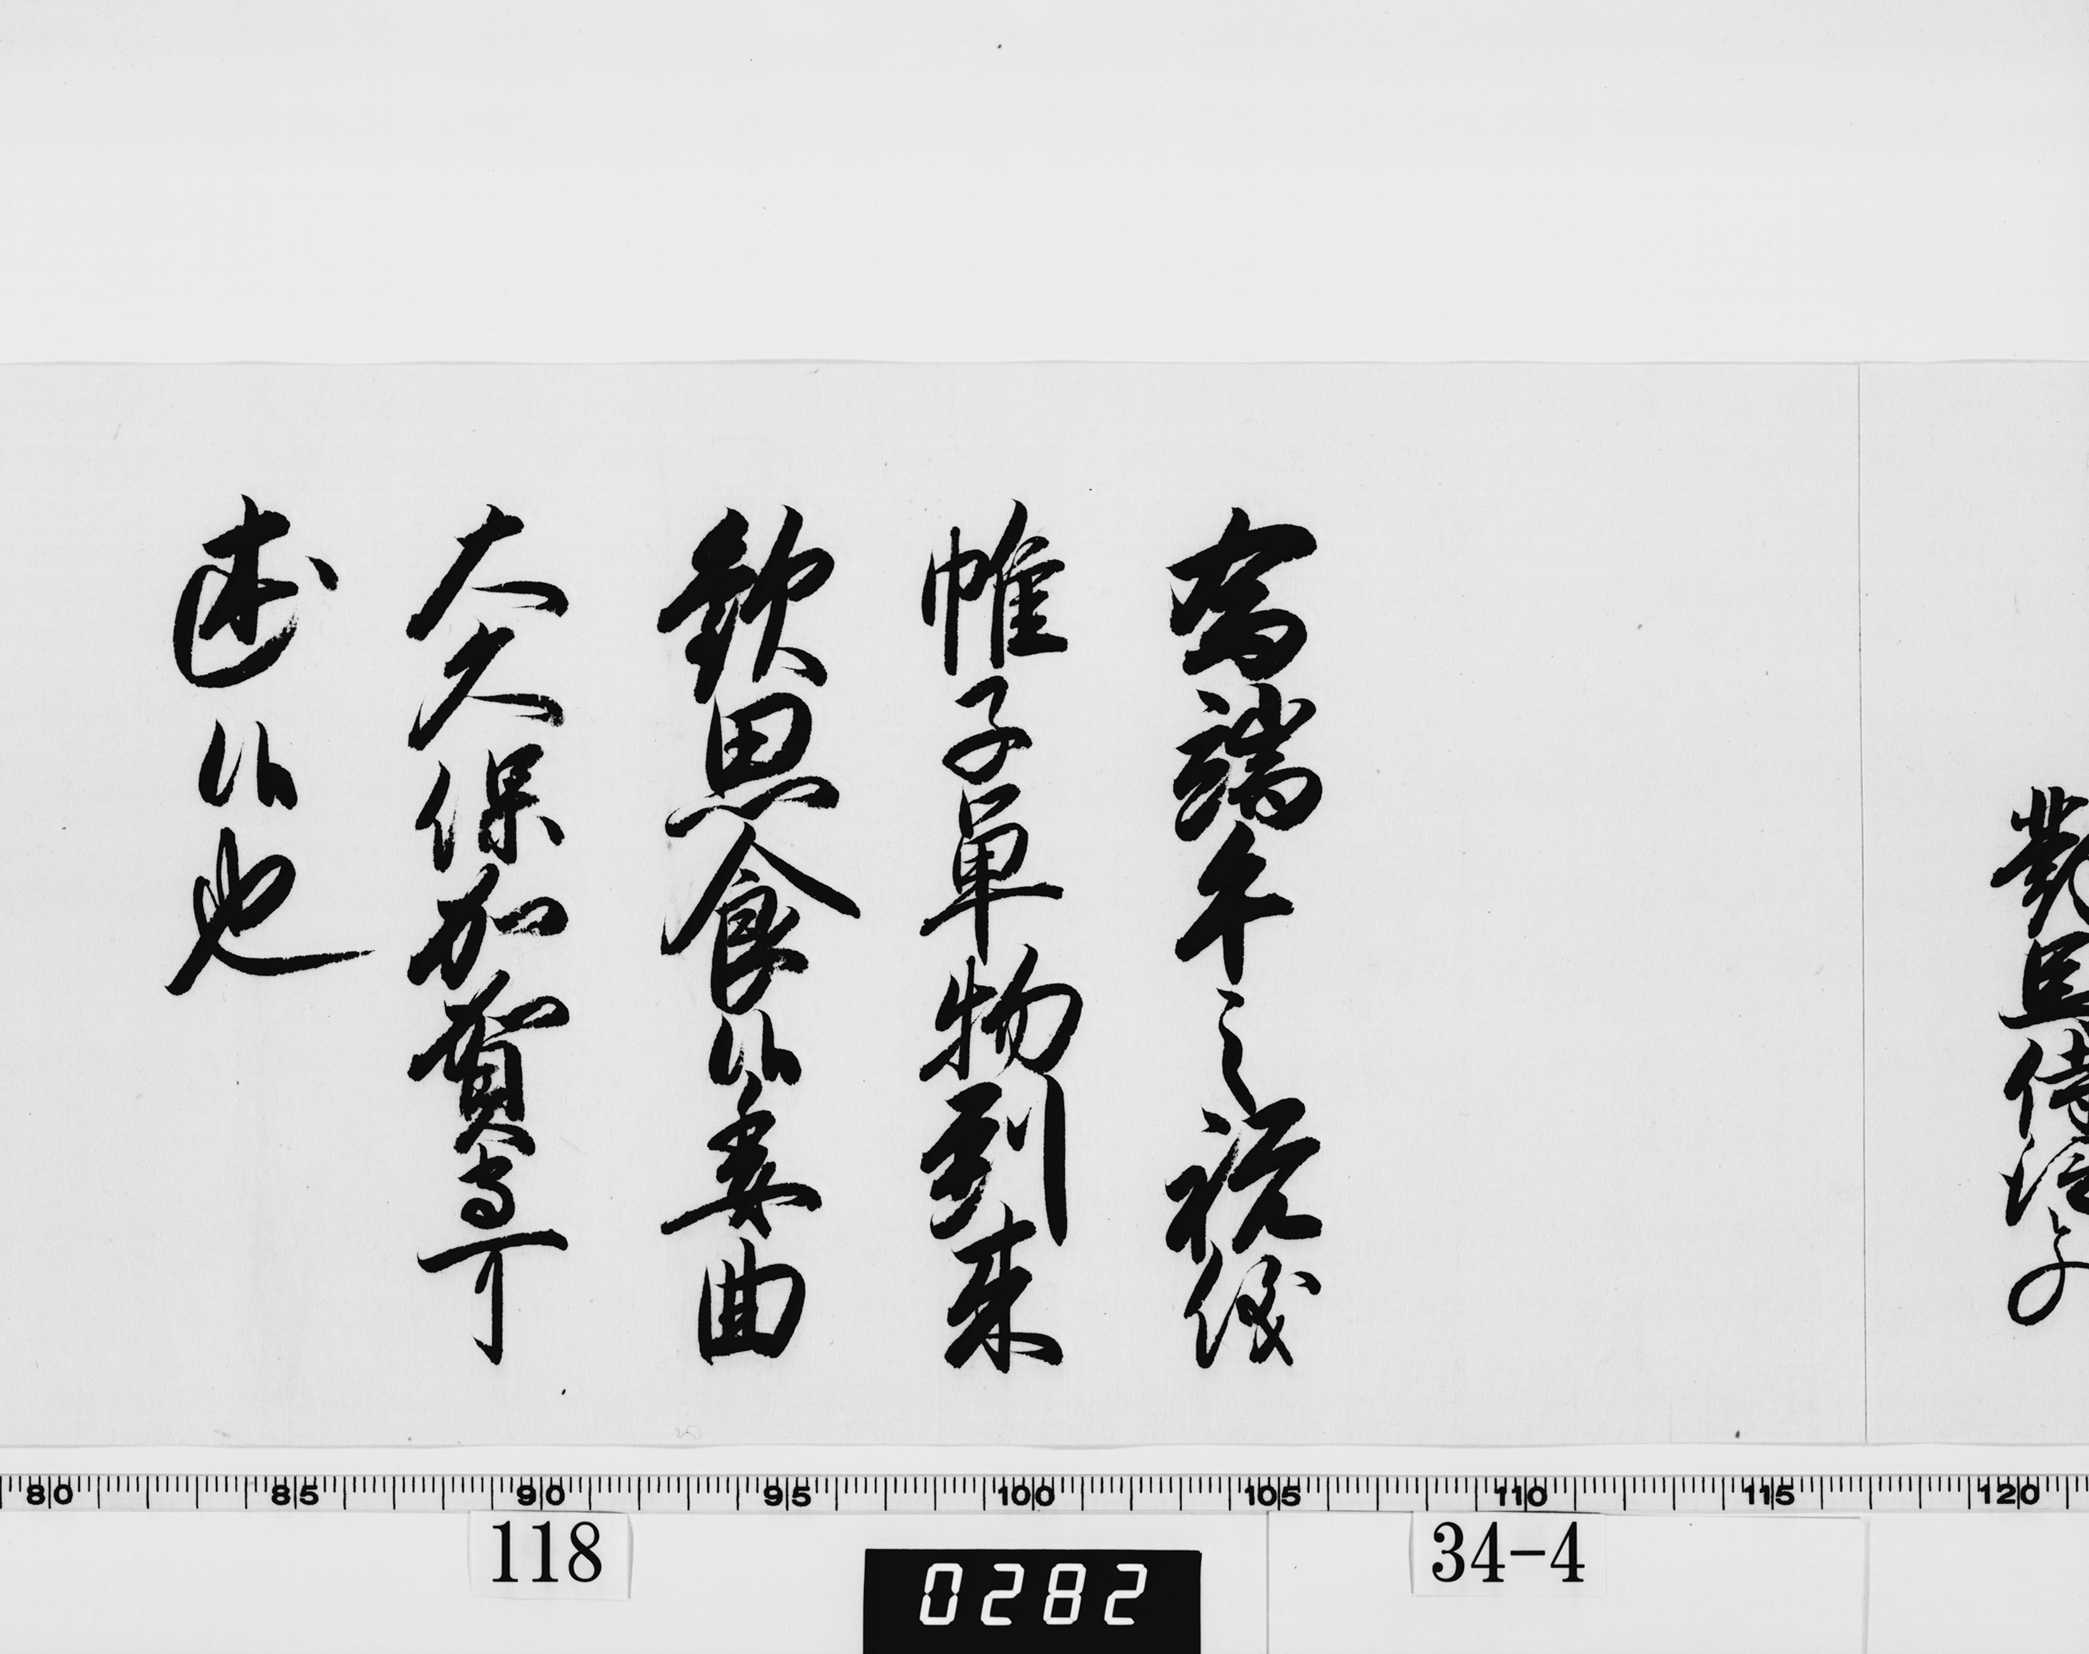 對馬侍従とのへ
為端午之祝儀
帷子単物到来
歓思食候委曲
大久保加賀守可
述候也
80 85 90 95 100 105 110 115 120
118
0282
34-4